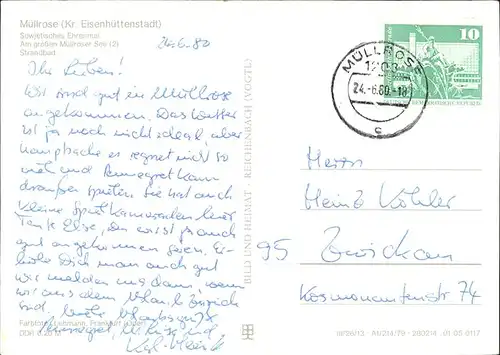 Müllrose (Kr. Eisenhüttenstadt)
Sowjetisches Ehrenmal
Am großen Müllroser See (2)
Strandbad
24.6.80
Ihr Lieben!
Wir sind gut in Müllrose
angekommen. Das Wetter
ist ja noch nicht ideal, aber
Hauptsache es regnet nicht so
viel und Annegret kann
draußen spielen. Sie hat auch
kleine Spielkameraden hier.
Tante Else, Du wirst ja auch
gut angekommen sein. Er-
hole Dich man auch gut
wir melden uns dann, wenn
wir aus dem Urlaub zurück
sind, viele Urlaubsgrüße
Annegret,
Farbfoto: Lehmann, Frankfurt (Oder)
BILD UND HEIMAT · REICHENBACH (VOGTL)
MÜLLROSE
1203
24.-6.80-18
c
10
Herrn
Heinz Köhler
95 Zwickau
Kosmonautenstr 74
01 05 0117